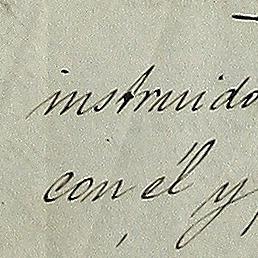 instruido
con él y